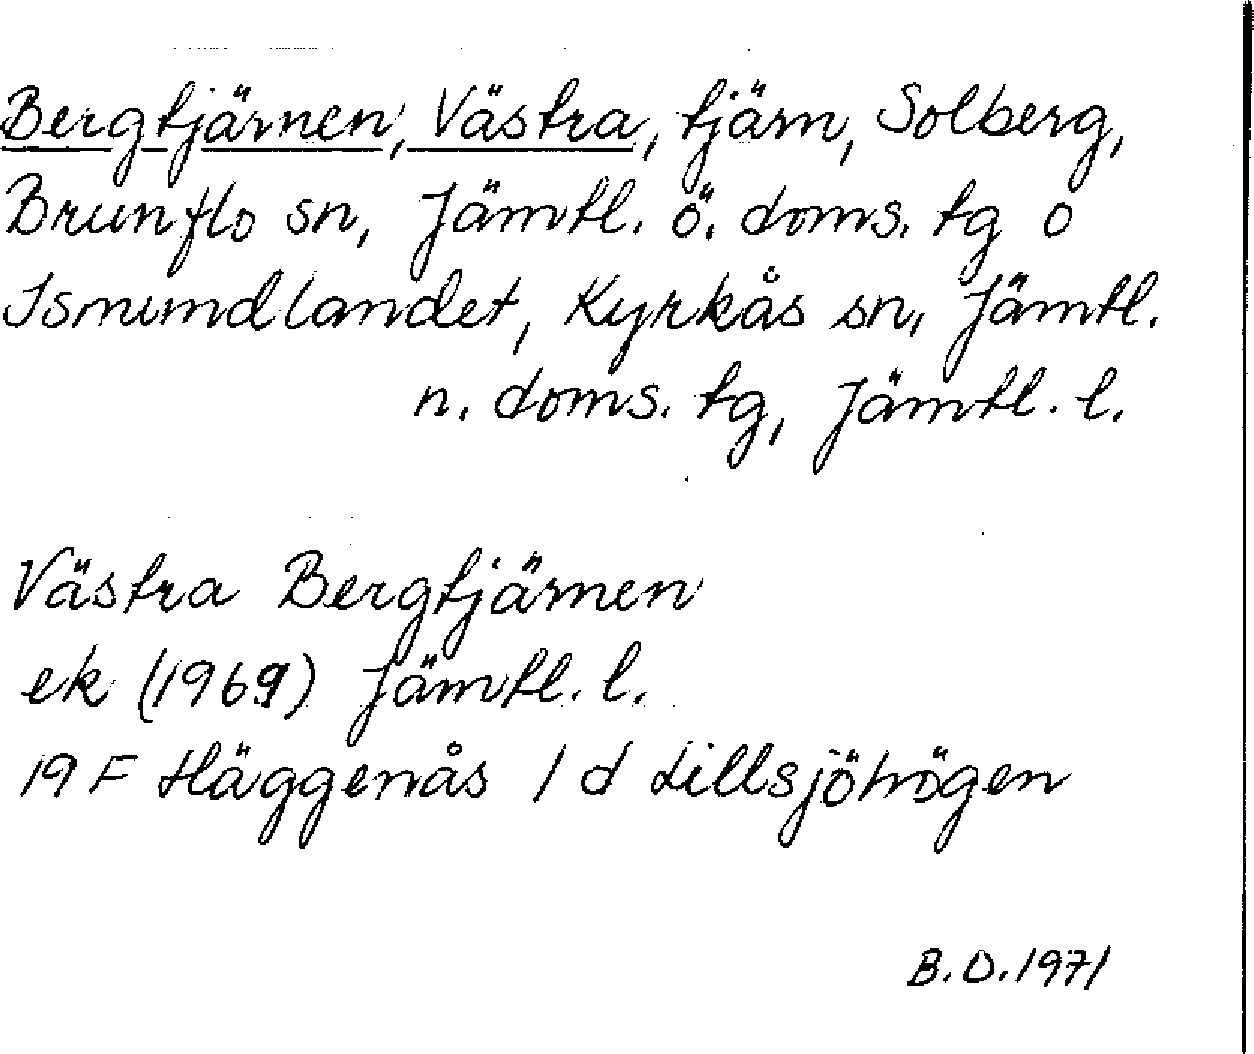 Bergtjärnen, Västra, tjärn, Solberg,
Brunflo sn, Jämtl. ö. doms. tg o
Ismundlandet, Kyrkås sn, Jämtl.
n. doms. tg, Jämtl. l.
Västra Bergtjärnen
ek (1969) Jämtl. l.
19 F Häggenås 1 d Lillsjöhögen
B.O.1971